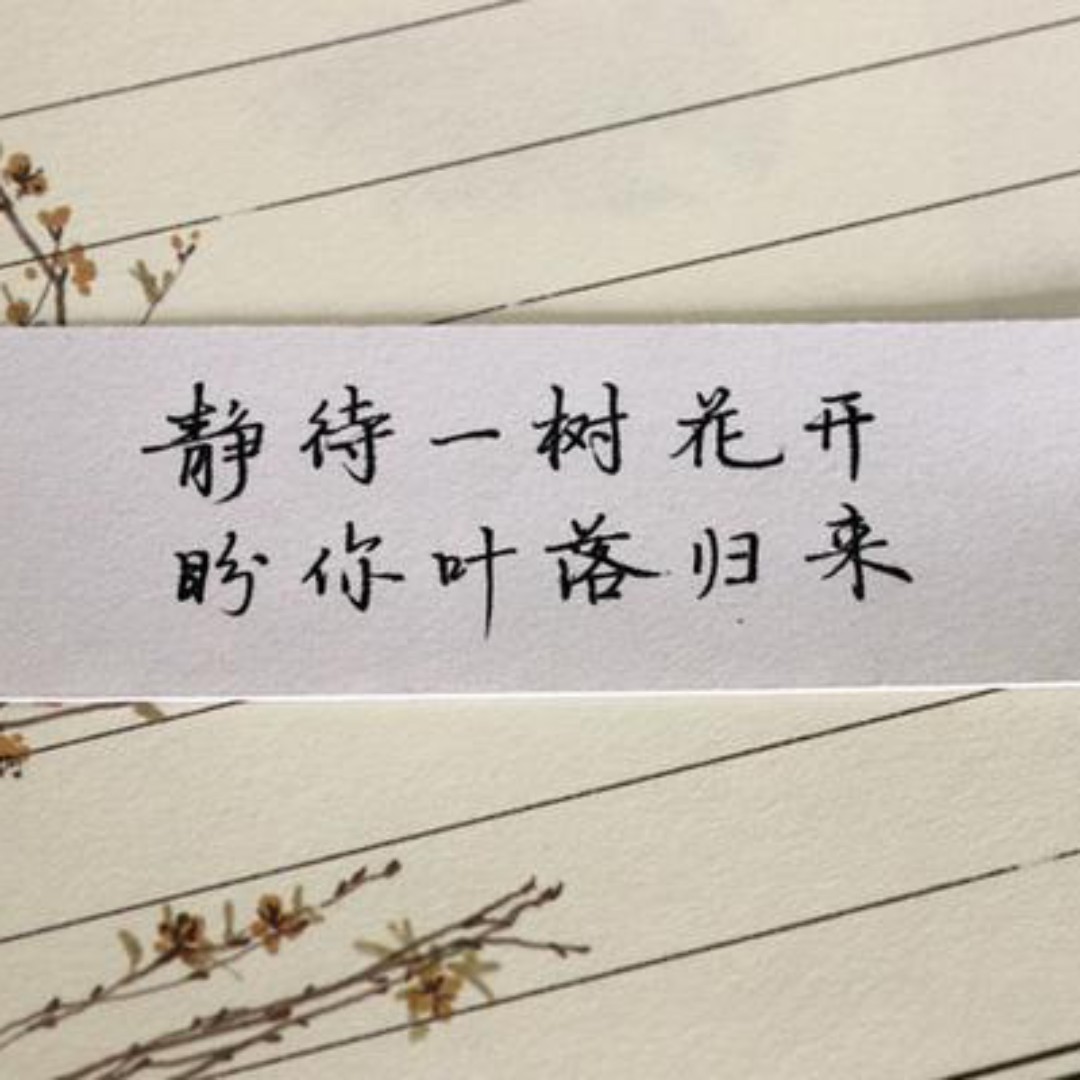 静待一树花开
盼你叶落归来